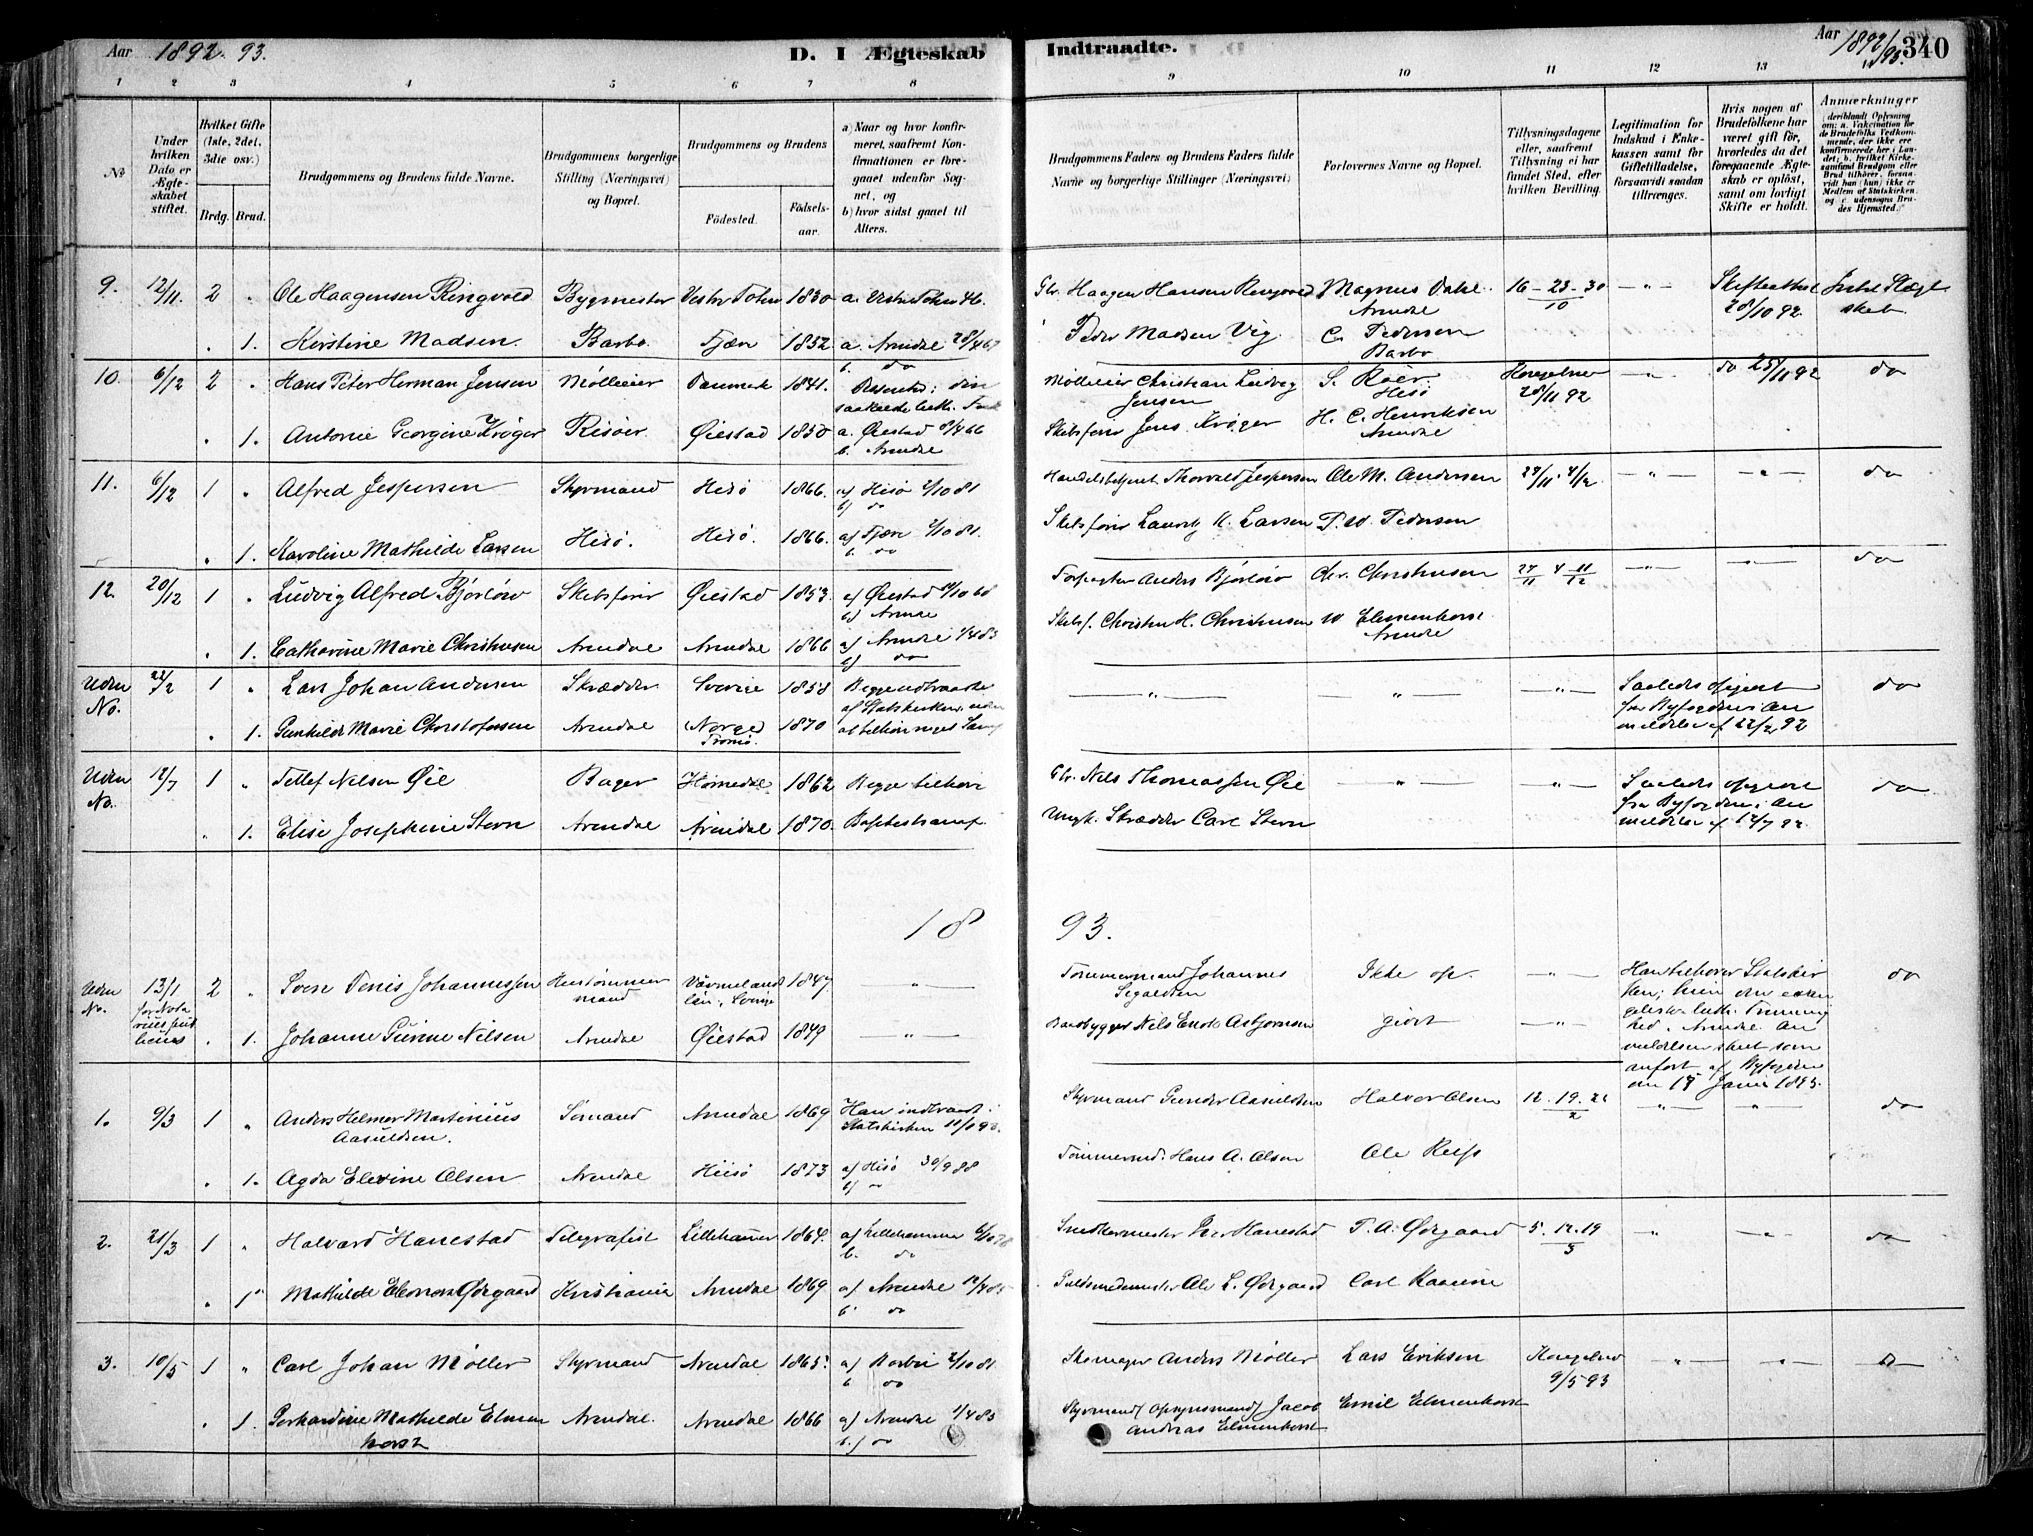 Aar 1892. 93.
D. I Ægteskab
Indtraadte.
Aar 1892/93.
340
1 2 3 4 5 6 7 8 9 10 11 12 13
№
Under hvilken Dato er Ægteskabet stiftet.
Hvilket Gifte (1ste, 2det, 3die osv.)
Brdg. Brud.
Brudgommens og Brudens fulde Navne.
Brudgommens borgerlige Stilling (Næringsvei) og Bopæl.
Brudgommens og Brudens
Födested.
Födselsaar.
a) Naar og hvor konfirmeret, saafremt Konfirmationen er foregaaet udenfor Sognet, og
b) hvor sidst gaaet til Alters.
Brudgommens Faders og Brudens Faders fulde Navne og borgerlige Stillinger (Næringsvei)
Forlovernes Navne og Bopæl.
Tillysningsdagene eller, saafremt Tillysning ei har fundet Sted, efter hvilken Bevilling.
Legitimation for Indskud i Enkekassen samt for Giftetilladelse, forsaavidt saadan tiltrænges.
Hvis nogen af Brudefolkene har været gift før, hvorledes da det foregaaende Ægteskab er oplöst, samt om lovligt Skifte er holdt.
Anmærkninger
(deriblandt Oplysning om: a. Vakcination for de Brudefolks Vedkommende, der ikke ere konfirmerede her i Landet; b. hvilket Kirkesamfund Brudgom eller Brud tilhörer, forsaavidt han (hun) ikke er Medlem af Statskirken, og c. udensogns Brudes Hjemsted.)
9. 12/11. 2 " Ole Haagensen Ringvold Bygmester Vestre Toten 1830 a. Vestre Toten 46. Haagen Hansen Ringvold Magnus Dahl Arendal 16 - 23 - 30 /10 - " - Skifteattest 28/10 92. Intet Slægtskab.
" 1. Kirstine Madsen Barbo Fjære 1852. a. Arendal 28/4 67 b. do Peder Madsen Vig C. Pedersen Barbo
10. 6/12 2 " Hans Peter Herman Jensen Møllieier Danmark 1841. Møllieier Christian Ludvig Jensen S. Röer Hisö Kongebrev 28/11 92 - " - do 25/11 92 do
" 1. Antonie Georgine Krøger Risöer Øiestad 1850 a. Øiestad 8/4 66 b. Arendal Skibsfører Jens Krøger H. C. Henriksen Arendal
11. 6/12 1 " Alfred Jespersen Styrmand Hisö 1866. a) Hisö 2/10 81 b) do Handelsbetjent Thorvald Jespersen Ole M. Andersen 27/11 4/12 - " - - " - do
" 1. Karoline Mathilde Larsen Hisö. Hisö. 1866. a) Fjære 2/10 81. b. do Skibsfører Lauritz M. Larsen P. W. Pedersen
12. 20/12 1 " Ludvig Alfred Bjorlow Skibsfører Øiestad 1853. a) Øiestad 4/10 68 b) Arendal Forpagter Anders Bjorlow Chr. Christensen 27/11 4 11/12 - " - - " - do
" 1. Catharine Marie Christensen Arendal Arendal 1866 a) Arendal 1/4 83 b) do Skibsf. Christen H. Christensen W Elmenhorst Arendal
Uden No. 22/2 1 " Lars Johan Andersen Skrædder Sverige 1858 Begge udtraadte af Statskirken uden - " - - " - - " - Saaledes opgivet fra Byfogdens Anmeldelse af 22/2 92 do
" 1. Gunhilde Marie Christofersen Arendal (Norge) Tromö. 1870 at tilhøre noget Samf
Uden No. 12/7 1 " Tellef Nilsen Øie Bager Homedal 1862 Begge tilhøre Nils Thomassen Øie - " - - " - Saaledes opgivet fra Byfogdens Anmeldelse af 12/7 92 do
" 1. Elise Josephine Stern Arendal Arendal 1870. Baptistsamf. Skrædder Carl Stern
18 93.
Uden No. 13/1 for Notarius publicus 2 " Sven Tenis Johannessen Hustømmermand Värmelands län, Sverige 1847. - " - Tømmermand Johannes Ikke op- - " - Han tilhører Statskirken; hun den evangelisk luth. Frimenighed i Arendal. Anmeldelsen skeet som anført af Byfogden den 17 Januar 1893. do
" 1. Johanne Gurine Nilsen Arendal Øiestad 1849 - " - Baadbygger Nils Enok Asbjørnsen givet - " -
1. 9/3 1 " Anders Helmer Martinius Aasuldsen. Sømand Arendal 1869 Han indtraadt i Statskirken Styrmand Gunder Aasuldsen Halvor Olsen 12. 19. 26 /2 - " - - " - do
" 1. Agda Elevine Olsen Arendal Hisö 1873 a) Hisö 30/9 88 b) do Tømmermd. Hans A. Olsen Ole Reiss
2. 21/3 1 " Halvard Hanestad Telegrafist Lillehammer 1864. a) Lillehammer 6/10 78 b. do Snedkermester Iver Hanestad P. A. Ørgaard 5. 12. 19 /3 " - " - do
" 1. Mathilde Eleonore Ørgaard Kristiania Arendal 1869 a) Arendal 12/4 85 b. do Guldsmedmester Ole L. Ørgaard Carl
3. 10/5 1 " Carl Johan Møller Styrmand Arendal 1865. a) Barbo 2/10 81. b do Skomager Anders Møller Lars Eriksen Kongebrev 9/5 93 " - " - do
" 1. Gerhardine Mathilde Elmenhorst Arendal. Arendal 1866 a) Arendal 1/4 83 b.) do Styrmand (Opsynsmand) Jacob Andreas Elmenhorst Emil Elmenhorst